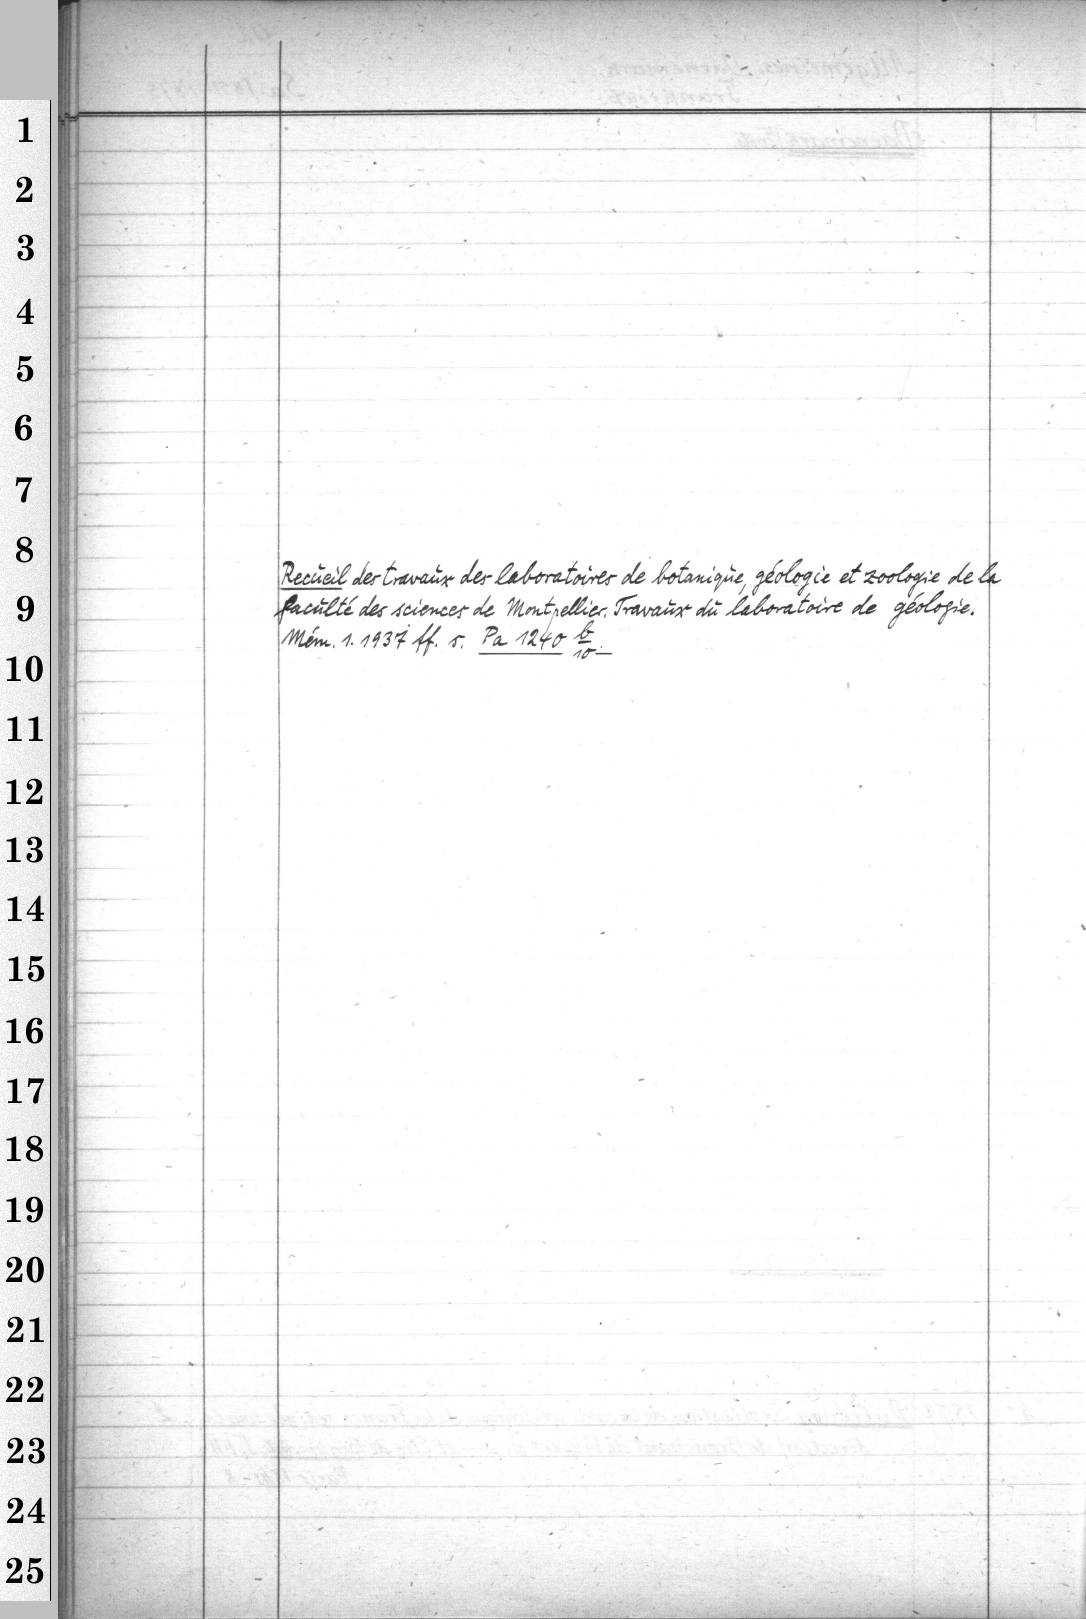 1
2
3
4
5
6
7
8
Recueil des travaux des laboratoires de botanique, géologie et zoologie de la
9
faculté des sciences de Montpellier. Travaux du laboratoire de géologie.
Mém. 1. 1937 ff. s. Pa 1240 b/10
10
11
12
13
14
15
16
17
18
19
20
21
22
23
24
25